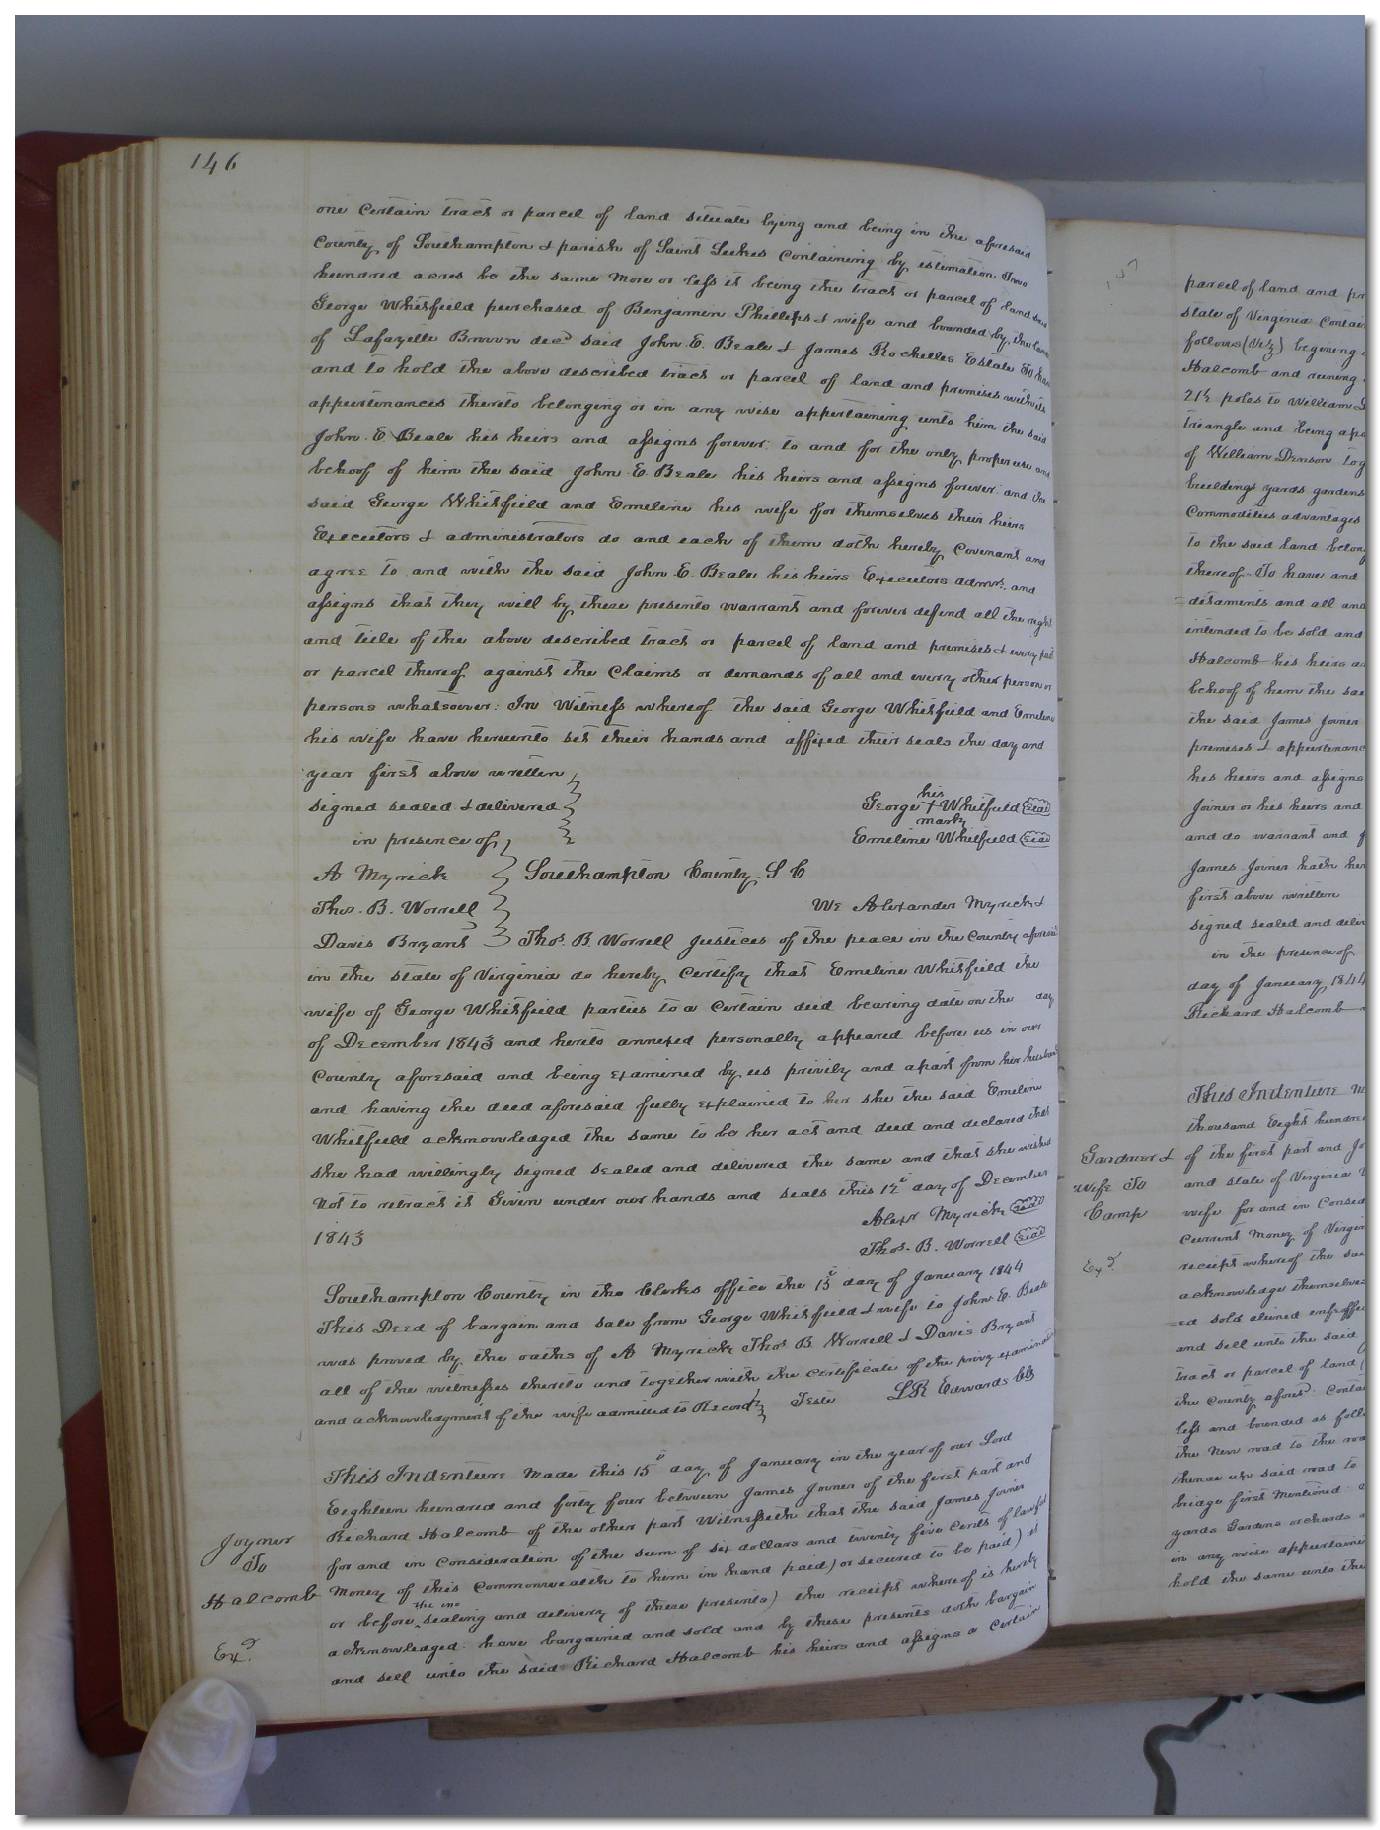 146
one Certain tract or parcel of land situate lying and being in the aforesaid
County of Southampton & parish of Saint Lukes Containing by estimation Two
hundred acres be the same more or less it being the tract or parcel of land said
George Whitfield purchased of Benjamin Phillips & wife and bounded by the lands
of Lafayette Brown decd said John E. Beale & James Rochelles Estate To have
and to hold the above described tract or parcel of land and premises with its
appertenances thereto belonging or in any wise appertaining unto him the said
John E Beale his heirs and assigns forever to and for the only proper use and
behoof of him the said John E. Beale his heirs and assigns forever and the
said George Whitfield and Emeline his wife for themselves their heirs
Executors & administrators do and each of them doth hereby Covenant and
agree to and with the said John E. Beale his heirs Executors admrs. and
assigns that they will by these presents warrant and forever defend all the right
and title of the above described tract or parcel of land and premises & every part
or parcel thereof against the Claims or demands of all and every other person or
persons whatsoever: In Witness whereof the said George Whitfield and Emeline
his wife have hereunto set their hands and affixed their seals the day and
year first above written
signed sealed & delivered
in presence of
his
George + Whitfield seal
mark
Emeline Whitfield seal
A Myrick
Thos. B. Worrell
Davis Bryant
Southampton County S C
We Alexander Myrick &
Thos. B. Worrell Justices of the peace in the County aforesaid
in the state of Virginia do hereby Certify that Emeline Whitfield the
wife of George Whitfield parties to a Certain deed bearing date on the day
of December 1843 and hereto annexed personally appeared before us in our
County aforesaid and being examined by us privily and apart from her husband
and having the deed aforesaid fully explained to her she the said Emeline
Whitfield acknowledged the same to be her act and deed and declared that
she had willingly signed sealed and delivered the same and that she wished
not to retract it Given under our hands and seals this day of December
1843
Alexr Myrick seal
Thos. B. Worrell seal
Southampton County in the Clerks office the 15 day of January 1844
This Deed of bargain and sale from George Whitfield & wife to John E. Beale
was proved by the oaths of A Myrick Thos B. Worrell & Davis Bryant
all of the witnesses thereto and together with the Certificate of the privy examination
and acknowledgment of the wife admitted to Record
Teste LR Edwards Clk
This Indenture Made this 15th day of January in the year of our Lord
Eighteen hundred and forty four between James Joiner of the first part and
Richard Halcomb of the other part Witnesseth that the said James Joiner
for and in Consideration of the sum of six dollars and twenty five Cents of lawful
Money of this Commonwealth to him in hand paid) or secured to be paid) at
or before the sealing and delivery of these presents) the receipt whereof is hereby
acknowledged: have bargained and sold and by these presents doth bargain
and sell unto the said Richard Halcomb his heirs and assigns a Certain
Joyner
To
Halcomb
Exd.
147
parcel of land and
state of Virginia
follows (Viz) begining
Halcomb and runing
21½ poles to William
triangle and being
of William Denson
buildings yards gardens
Commodities advantages
to the said land
thereof. To have and
=ditaments and all
intended to be sold and
Halcomb his heirs
behoof of him the
the said James Joiner
premises &
his heirs and assigns
Joiner or his heirs and
and do warrant and
James Joiner hath
first above written
signed sealed and
in the presence of
day of January 1844
Richard Halcomb
This Indenture
thousand Eight
of the first part and
and state of Virginia
wife for and in
Current Money of
receipt whereof the
acknowledge
=ed sold
and sell unto the said
tract or parcel of land
the County aforesd.
less and bounded as
the New road to the
thence up said road to
bridge first Mentioned
yards Gardens orchards
in any wise
hold the same unto the
Gardner &
wife To
Camp
Exd.